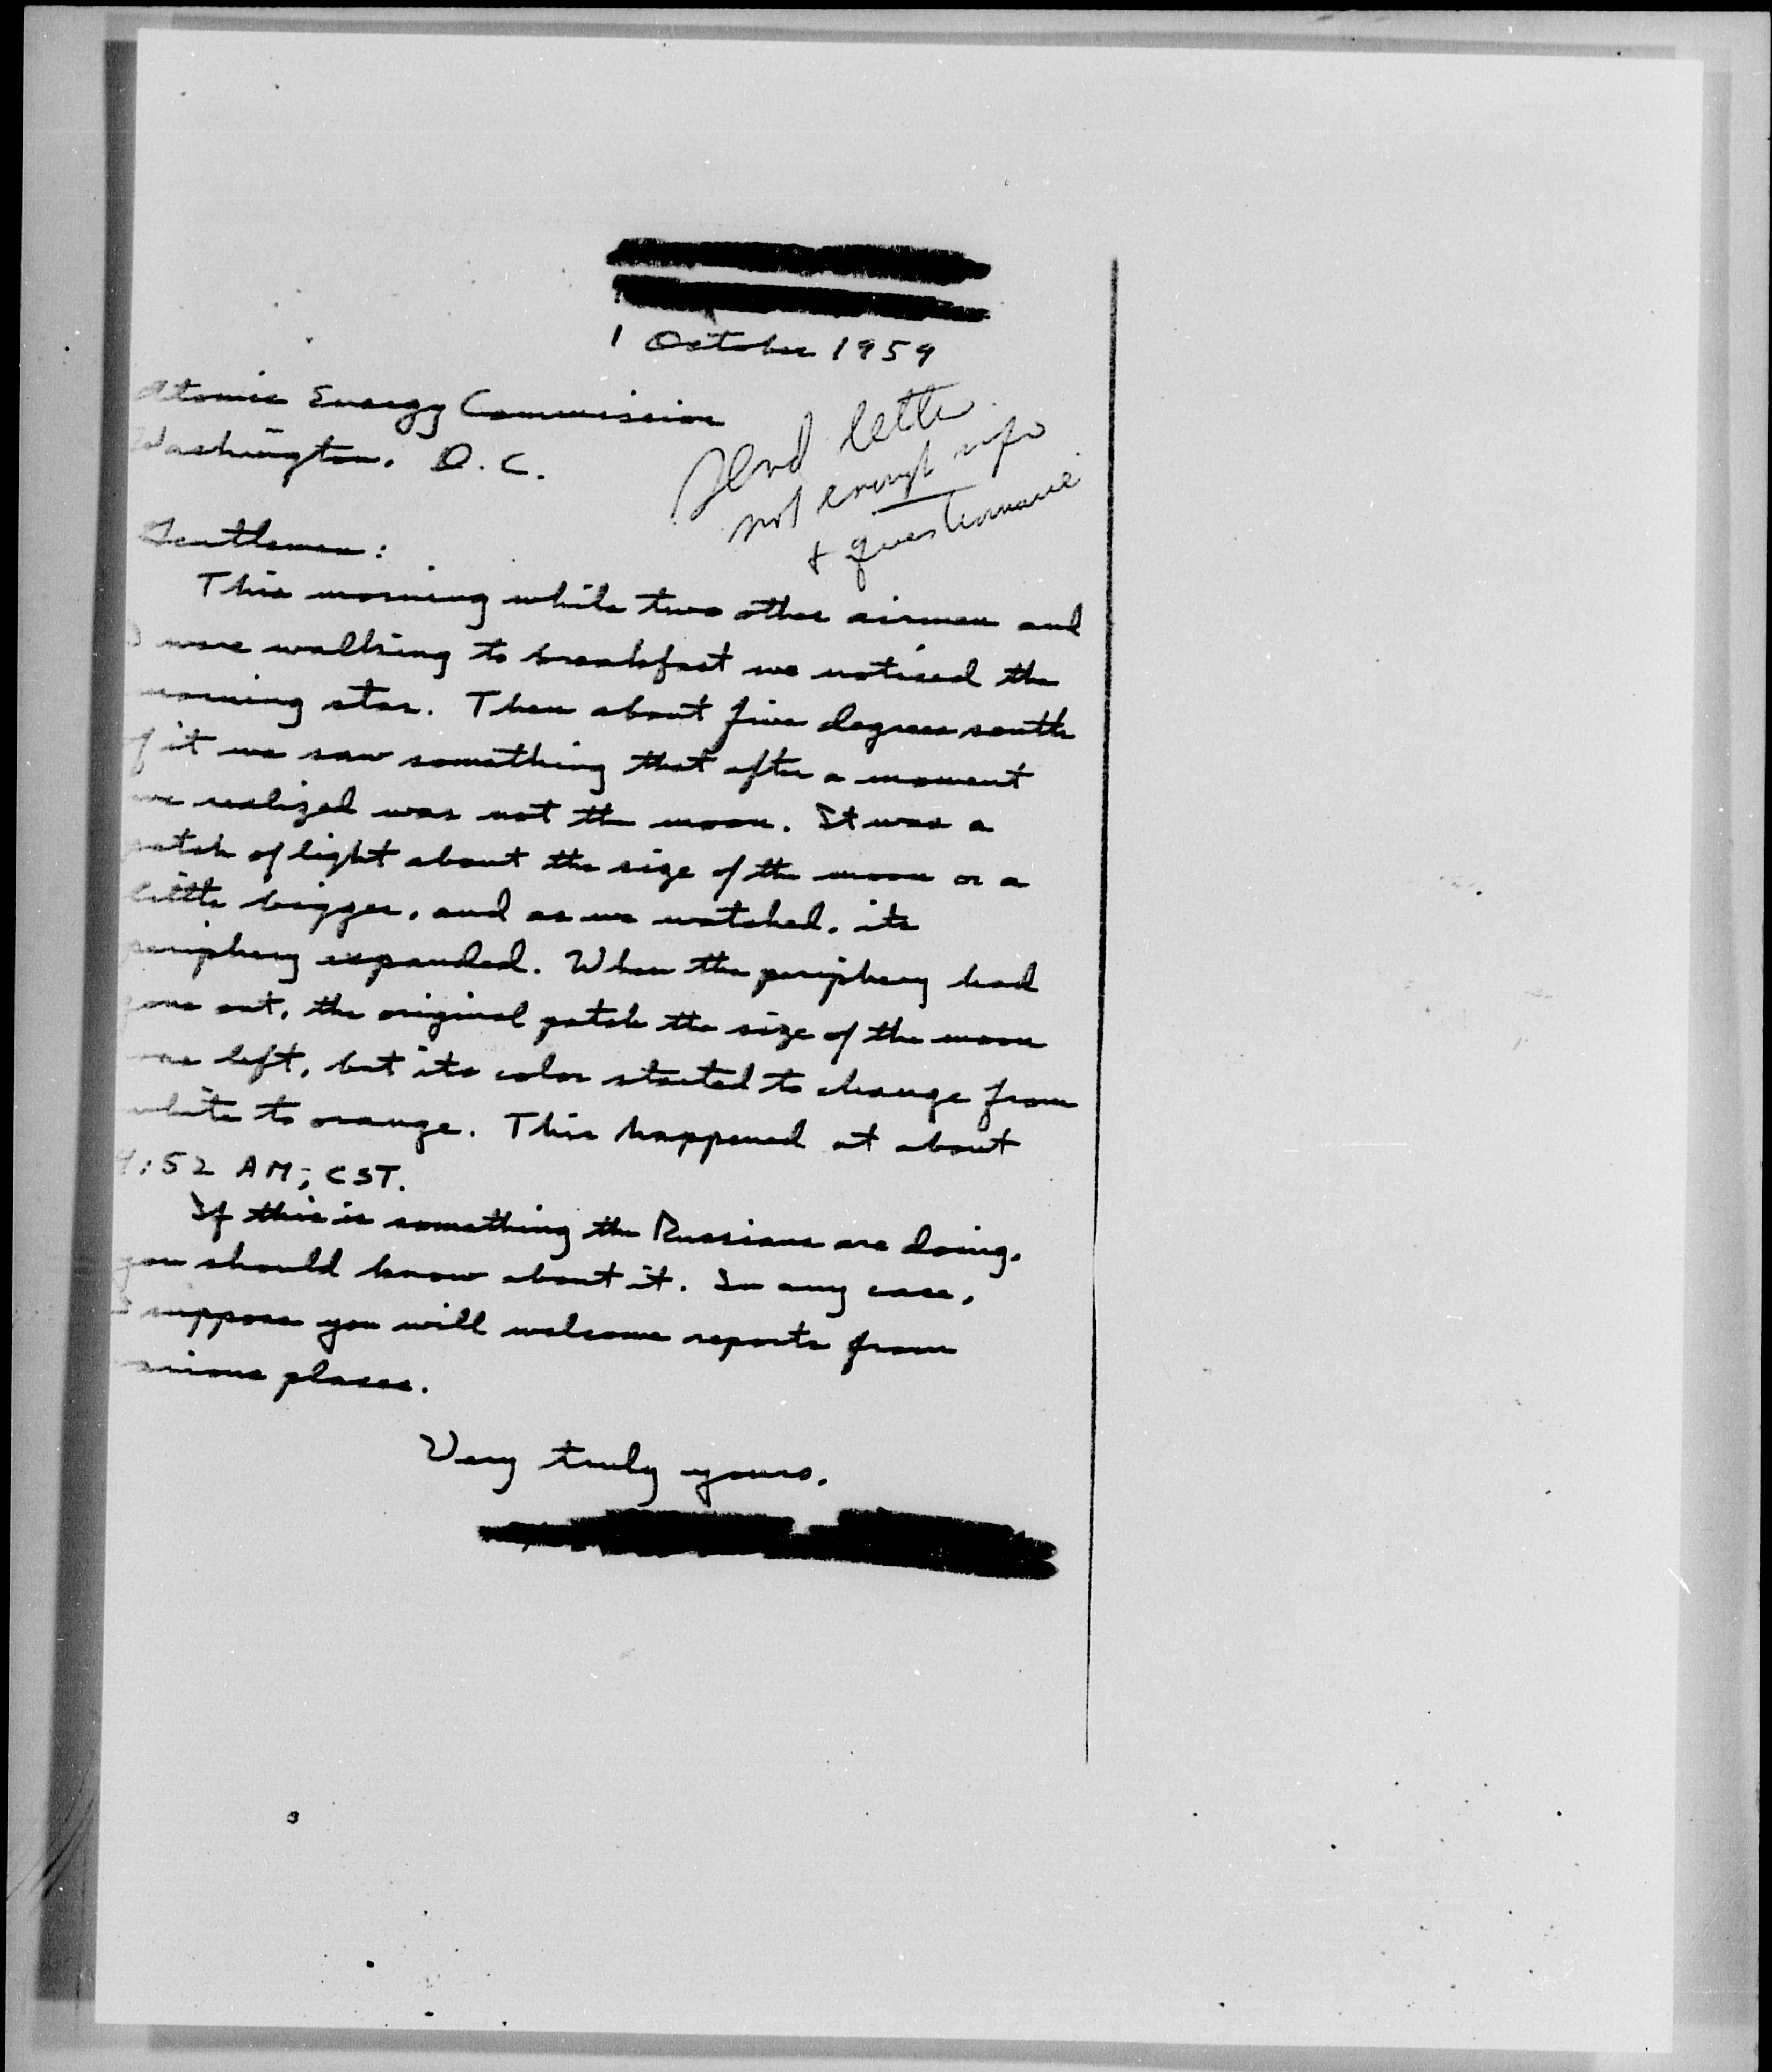 1 October 1959
Atomic Energy Commission
Washington, D.C.
Send letter
not enough info
+ questionnaire
Gentlemen:
This morning while two other airmen and
I were walking to breakfast we noticed the
morning star. Then about five degrees south
of it we saw something that after a moment
we realized was not the moon. It was a
patch of light about the size of the moon or a
little bigger, and as we watched, its
periphery expanded. When the periphery had
gone out, the original patch the size of the moon
was left, but its color started to change from
white to orange. This happened at about
4:52 AM, CST.
If this is something the Russians are doing,
you should know about it. In any case,
I suppose you will welcome reports from
various places.
Very truly yours,